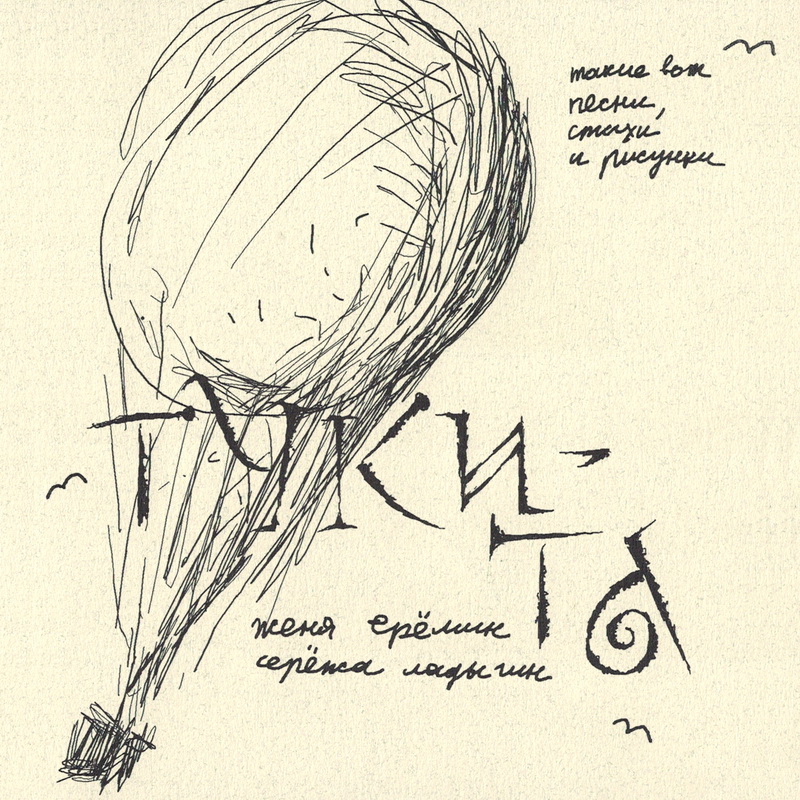 такие вот
песни,
стихи
и рисунки
ТУКИ-
ТА
женя ерёмин
серёжа ладыгин